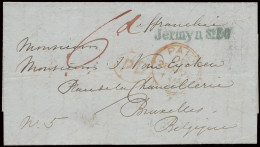 6d affranchie
Jermyn St
PAID
Monsieur
Monsieur J. Van Eycken
Rue de la Chancellerie
Bruxelles
No. 5
Belgique